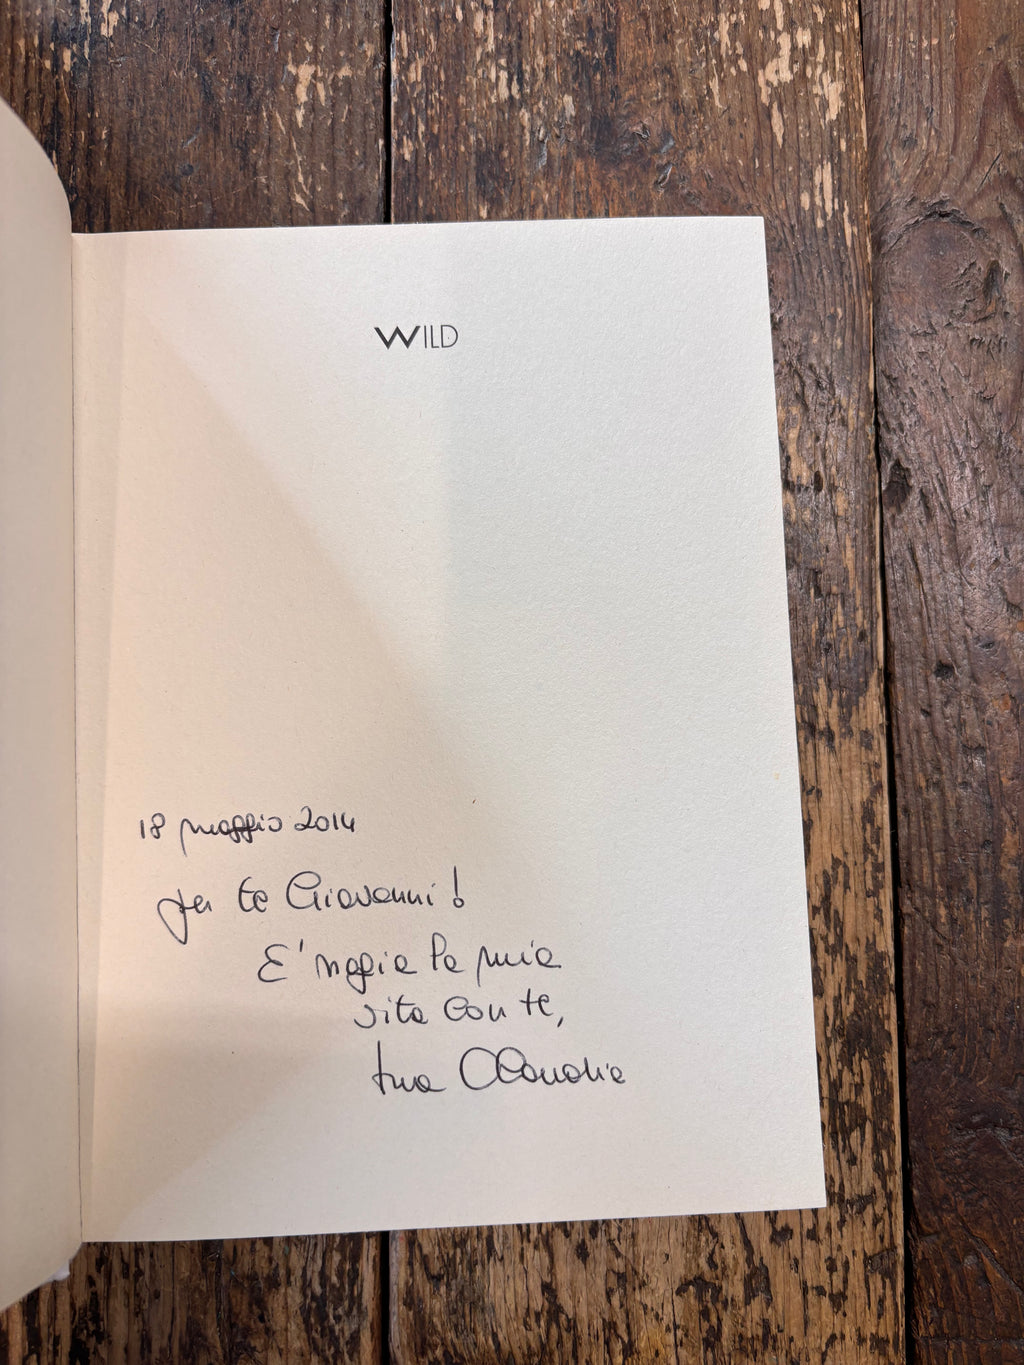 WILD
18 maggio 2014
per te Giovanni!
E' magia la mia
vita con te,
tua Claudia